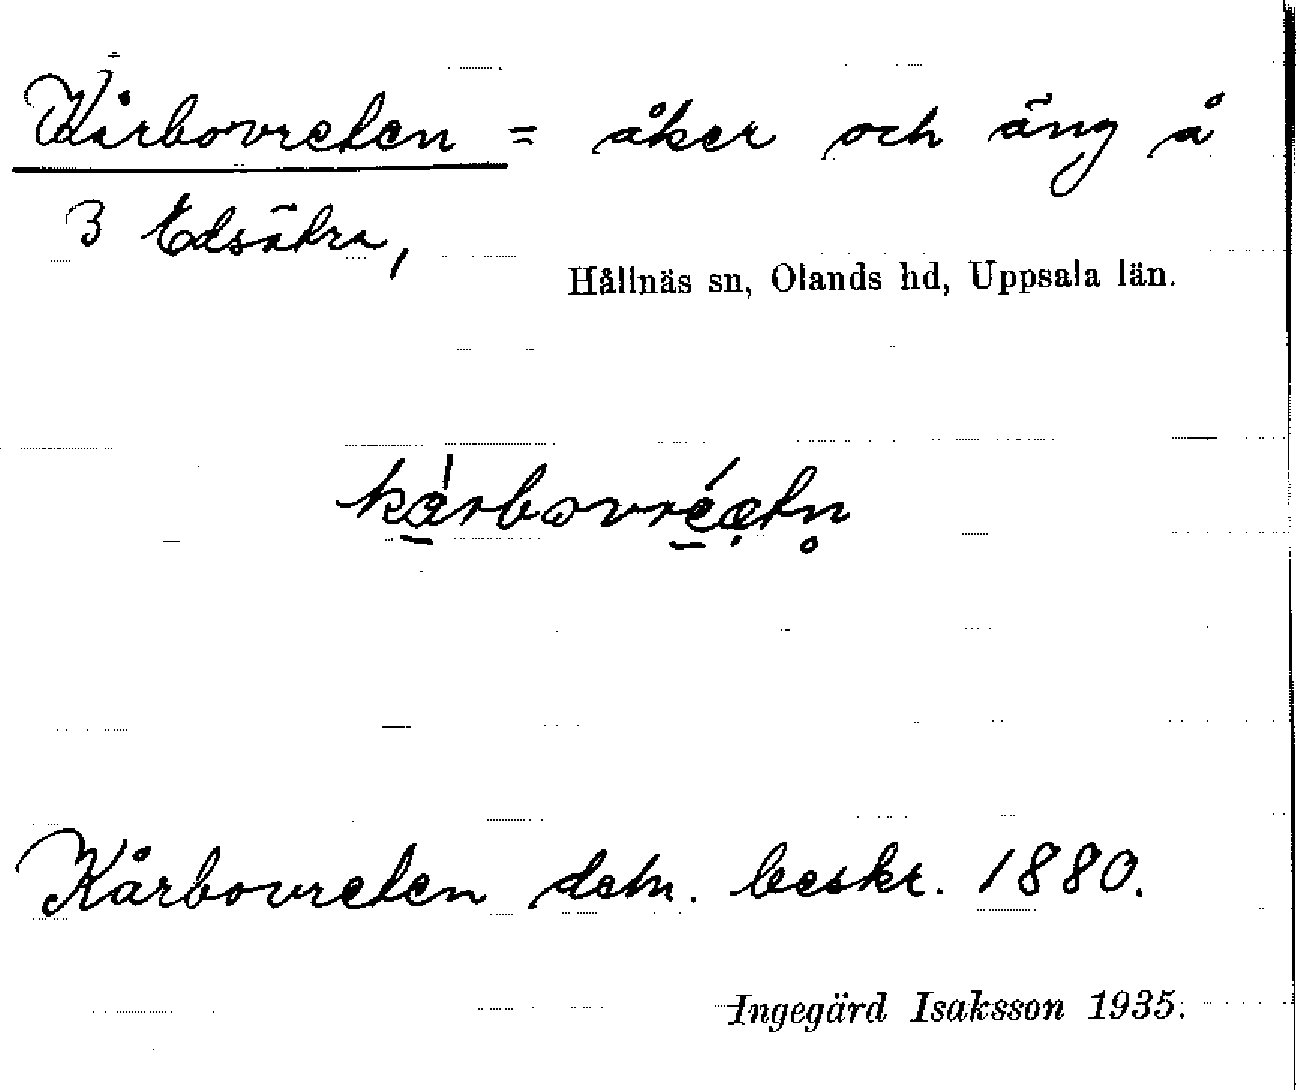 Kårbovreten = åker och äng å
3 Edsätra,
Hållnäs sn, Olands hd, Uppsala län.
Kårbovreten detn. beskr. 1880.
Ingegärd Isaksson 1935.